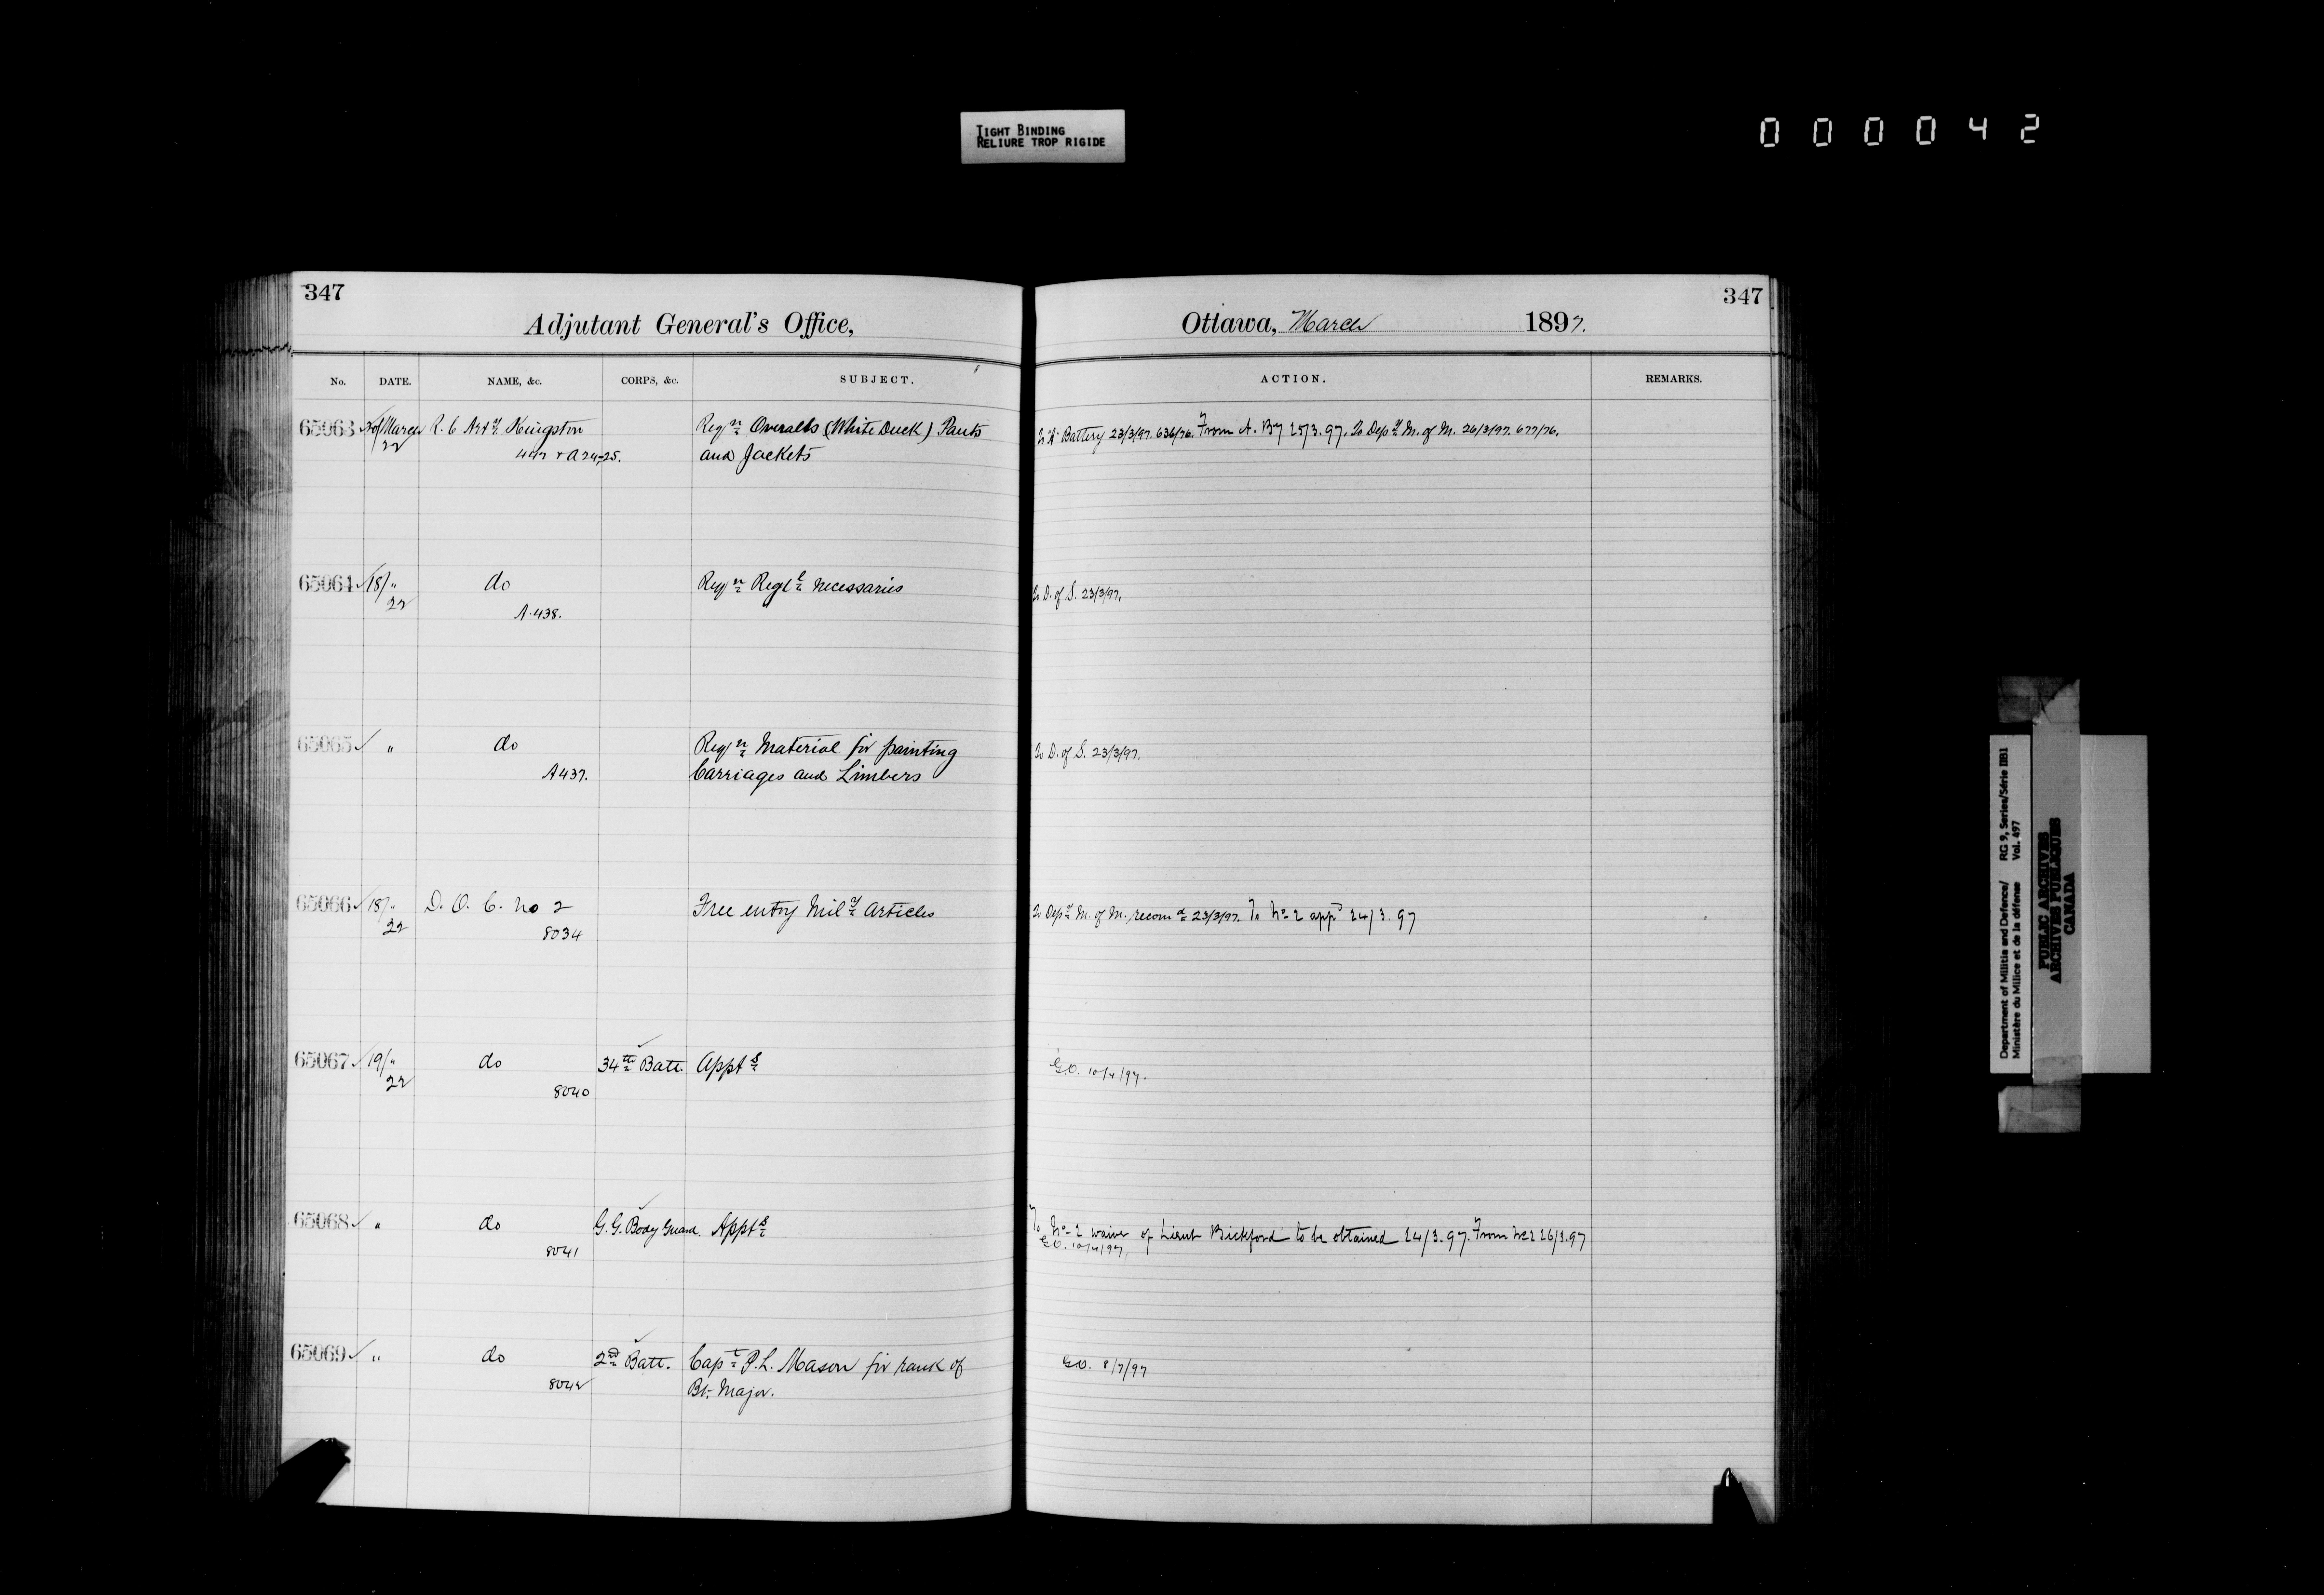 TIGHT BINDING
RELIURE TROP RIGIDE
000042
347
Adjutant General's Office,
No. DATE. NAME, &c. CORPS, &c. SUBJECT.
65063 March 22 R. C. Art.y Kingston Reqn Overalls (White Duck) Pants
and Jackets
65064 18/" 22 do Reqn Regtl necessaries
A.438.
65065 " do Reqn Material for painting
A437. Carriages and Limbers
65066 18/" 22 D. O. C. No 2 Free entry Mily Articles
8034
65067 19/" 22 do 34th Batt. Appts
8040
65068 " do G. G. Body Guard. Appts
8041
65069 " do 2nd Batt. Capt P. L. Mason for rank of
8042 Bt. Major.
347
Ottawa, March 1897.
ACTION. REMARKS.
To "A" Battery 23/3/97. 636/76. From A. By 25/3.97. To Depy M. of M. 26/3/97. 677/76.
To D. of S. 23/3/97.
To D. of S. 23/3/97.
To Depy M. of M. recomd 23/3/97. To No 2 appd 24/3.97
G.O. 10/4/97.
To No 2 waiver of Lieut Bickford to be obtained 24/3.97. From No 2 26/3.97
G.O. 10/4/97.
G.O. 8/7/97
Department of Militia and Defence/ RG 9, Series/Série IIB1
Ministère du Milice et de la défense Vol. 497
PUBLIC ARCHIVES
ARCHIVES PUBLIQUES
CANADA